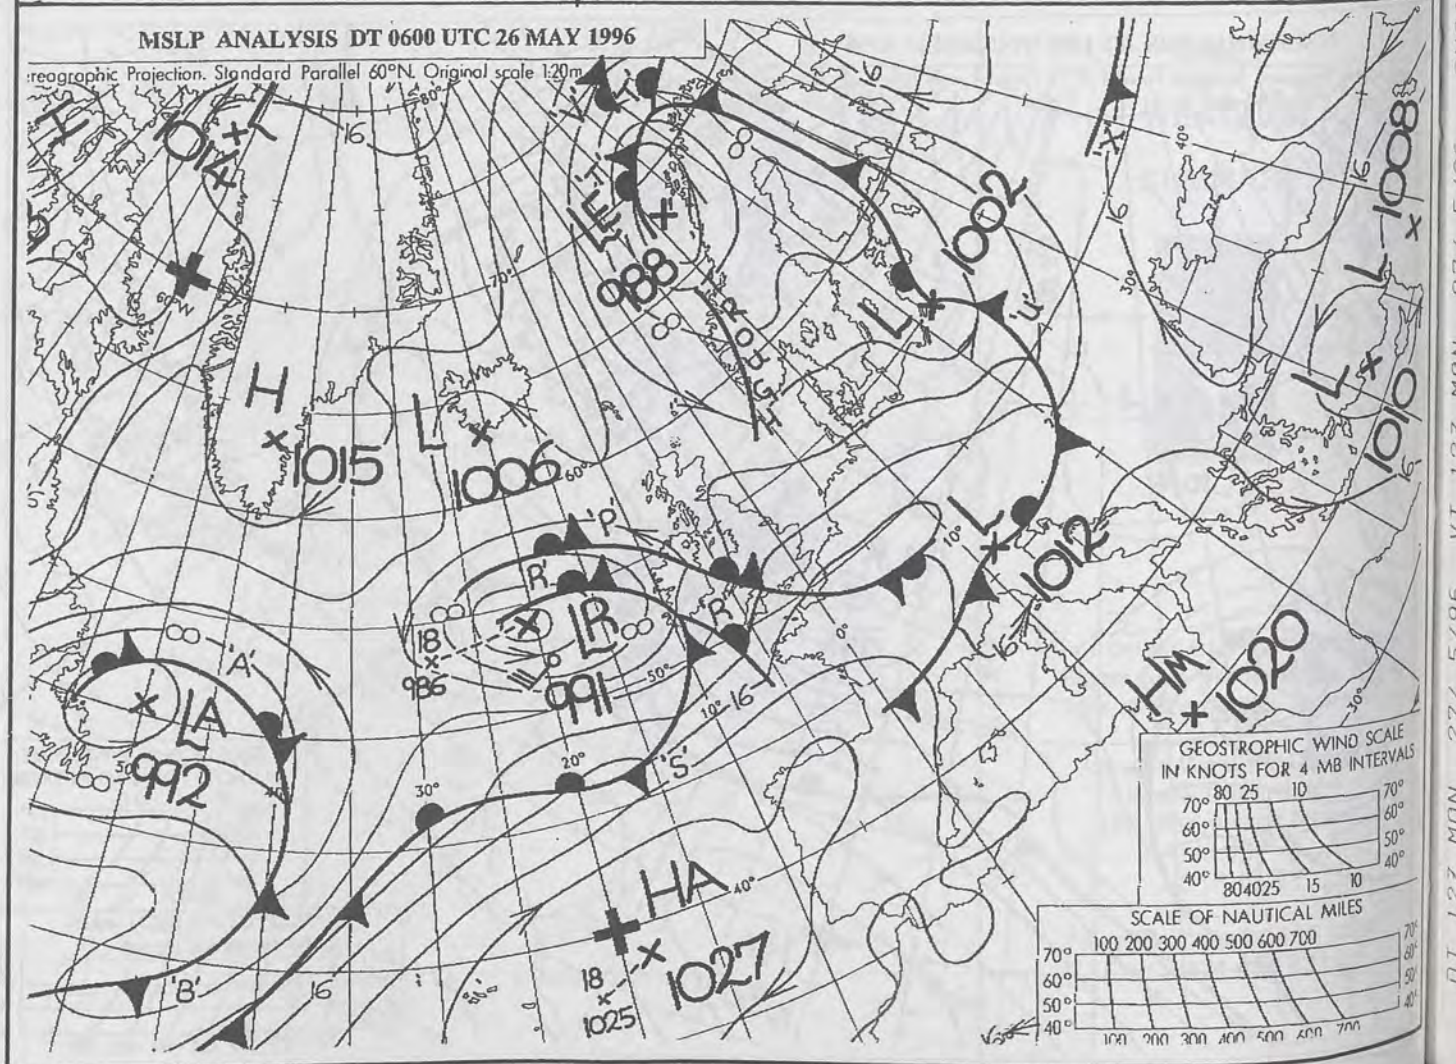 MSLP ANALYSIS DT 0600 UTC 26 MAY 1996
reographic Projection. Standard Parallel 60°N. Original scale 1:20m
80°
16
16
H
L
1014
'X'
40°
16
L
1008
'T'
LE
988
00
00
TROUGH
1002
L
'U'
16
30°
60°W
70°
H
1015
L
1006
60°
L
1010
16
'P'
10°
L
1012
'R'
LR
991
00
00
18
986
'R'
0°
50°
10°
16
16
00
'A'
LA
992
00
HM
1020
30°
20°
30°
'S'
HA
1027
40°
18
1025
'B'
16
GEOSTROPHIC WIND SCALE
IN KNOTS FOR 4 MB INTERVALS
80 25 10
70° 70°
60° 60°
50° 50°
40° 40°
80 40 25 15 10
SCALE OF NAUTICAL MILES
100 200 300 400 500 600 700
70° 70°
60° 60°
50° 50°
40° 40°
100 200 300 400 500 600 700